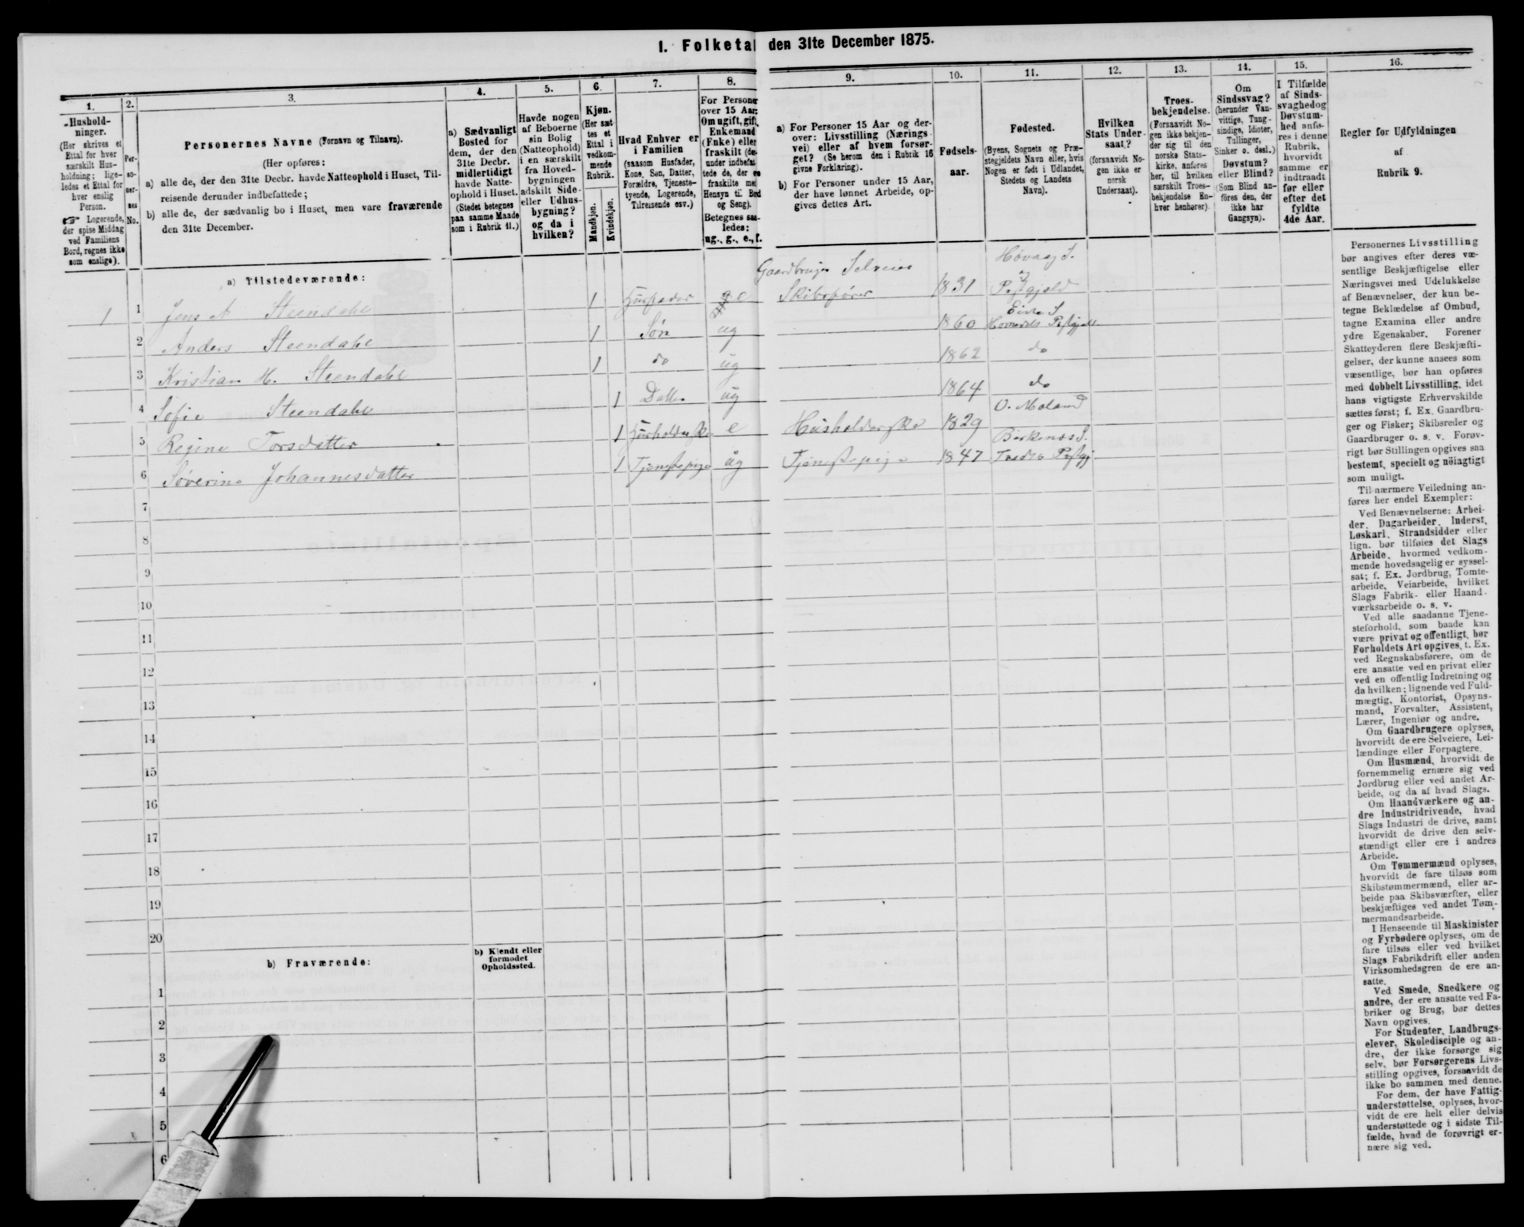 1. Folketal den 31te December 1875.
1.
2.
3.
4.
5.
6.
7.
8.
9.
10.
11.
12.
13.
14.
15.
16.
Hushold-
ninger.
(Her skrives et
Ettal for hver
særskilt Hus-
holdning; lige-
ledes et Ettal for
hver enslig
Person.
Logerende,
der spise Middag
ved Familiens
Bord, regnes ikke
som enslige).
Per-
so-
ner-
nes
No.
Personernes Navne (Fornavn og Tilnavn).
(Her opføres:
a) alle de, der den 31te Decbr. havde Natteophold i Huset, Til-
reisende derunder indbefattede;
b) alle de, der sædvanlig bo i Huset, men vare fraværende
den 31te December.
a) Sædvanligt
Bosted for
dem, der den
31te Decbr.
midlertidigt
havde Natte-
ophold i Huset.
(Stedet betegnes
paa samme Maade
som i Rubrik 11.)
Havde nogen
af Beboerne
sin Bolig
(Natteophold)
i en særskilt
fra Hoved-
bygningen
adskilt Side-
eller Udhus-
bygning?
og da i
hvilken?
Kjøn.
(Her sæt-
tes et
Ettal i
vedkom-
mende
Rubrik.
Mandkjøn.
Kvindekjøn.
Hvad Enhver er
i Familien
(saasom Husfader,
Kone, Søn, Datter,
Forældre, Tjeneste-
tyende, Logerende,
Tilreisende osv.)
For Personer
over 15 Aar:
Om ugift, gift,
Enkemand
(Enke) eller
fraskilt (der-
under indbefat-
tede de, der ere
fraskilte med
Hensyn til Bord
og Seng).
Betegnes saa-
ledes:
ug., g., e., f.
a) For Personer 15 Aar og der-
over: Livsstilling (Nærings-
vei) eller af hvem forsør-
get? (Se herom den i Rubrik 16
givne Forklaring).
b) For Personer under 15 Aar,
der have lønnet Arbeide, op-
gives dettes Art.
Fødsels-
aar.
Fødested.
(Byens, Sognets og Præ-
stegjeldets Navn eller, hvis
Nogen er født i Udlandet,
Stedets og Landets
Navn).
Hvilken
Stats Under-
saat?
(forsaavidt No-
gen ikke er
norsk
Undersaat).
Troes-
bekjendelse.
(Forsaavidt No-
gen ikke bekjen-
der sig til den
norske Stats-
kirke, anføres
her, til hvilken
særskilt Troes-
bekjendelse En-
hver henhører).
Om
Sindssvag?
(herunder Van-
vittige, Tung-
sindige, Idioter,
Tullinger,
Sinker o. desl.)
Døvstum?
eller Blind?
(Som Blind an-
føres den, der
ikke har
Gangsyn).
I Tilfælde
af Sinds-
svaghed og
Døvstum-
hed anfø-
res i denne
Rubrik,
hvorvidt
samme er
indtraadt
før eller
efter det
fyldte
4de Aar.
Regler for Udfyldningen
af
Rubrik 9.
a) Tilstedeværende:
1 1 Jens A Steendahl 1 Husfader e Gaardbruger Selveier Skibsfører 1831 Høvaag S. Pgjeld
2 Anders Steendahl 1 Søn ug 1860 Eide S
3 Kristian M. Steendahl 1 do ug 1862 do
4 Sofie Steendahl 1 Datter ug 1864 do
5 Regine Torsdatter 1 Husholderske e Husholderske 1829 O. Moland
6 Søverine Johannesdatter 1 Tjenestepige ug Tjenestepige 1847 Birkenæs S.
7
8
9
10
11
12
13
14
15
16
17
18
19
20
b) Fraværende:
b) Kjendt eller
formodet
Opholdssted.
1
2
3
4
5
6
Personernes Livsstilling
bør angives efter deres væ-
sentlige Beskjæftigelse eller
Næringsvei med Udelukkelse
af Benævnelser, der kun be-
tegne Beklædelse af Ombud,
tagne Examina eller andre
ydre Egenskaber. Forener
Skatteyderen flere Beskjæfti-
gelser, der kunne ansees som
væsentlige, bør han opføres
med dobbelt Livsstilling, idet
hans vigtigste Erhvervskilde
sættes først; f. Ex. Gaardbru-
ger og Fisker; Skibsreder og
Gaardbruger o. s. v. Forøv-
rigt bør Stillingen opgives saa
bestemt, specielt og nøiagtigt
som muligt.
Til nærmere Veiledning an-
føres her endel Exempler:
Ved Benævnelserne: Arbei-
der, Dagarbeider, Inderst,
Løskarl, Strandsidder eller
lign. bør tilføies det Slags
Arbeide, hvormed vedkom-
mende hovedsagelig er syssel-
sat; f. Ex. Jordbrug, Tomte-
arbeide, Veiarbeide, hvilket
Slags Fabrik- eller Haand-
værksarbeide o. s. v.
Ved alle saadanne Tjene-
steforhold, som baade kan
være privat og offentligt, bør
Forholdets Art opgives, t. Ex.
ved Regnskabsførere, om de
ere ansatte ved en privat eller
ved en offentlig Indretning og
da hvilken; lignende ved Fuld-
mægtig, Kontorist, Opsyns-
mand, Forvalter, Assistent,
Lærer, Ingeniør og andre.
Om Gaardbrugere oplyses,
hvorvidt de ere Selveiere, Lei-
lændinge eller Forpagtere.
Om Husmænd, hvorvidt de
fornemmelig ernære sig ved
Jordbrug eller ved andet Ar-
beide, og da af hvad Slags.
Om Haandværkere og an-
dre Industridrivende, hvad
Slags Industri de drive, samt
hvorvidt de drive den selv-
stændigt eller ere i andres
Arbeide.
Om Tømmermænd oplyses,
hvorvidt de fare tilsøs som
Skibstømmermænd, eller ar-
beide paa Skibsværfter, eller
beskjæftiges ved andet Tøm-
mermandsarbeide.
I Henseende til Maskinister
og Fyrbødere oplyses, om de
fare tilsøs eller ved hvilket
Slags Fabrikdrift eller anden
Virksomhedsgren de ere an-
satte.
Ved Smede, Snedkere og
andre, der ere ansatte ved Fa-
briker og Brug, bør dettes
Navn opgives.
For Studenter, Landbrugs-
elever, Skoledisciple og an-
dre, der ikke forsørge sig
selv, bør Forsørgerens Livs-
stilling opgives, forsaavidt de
ikke bo sammen med denne.
For dem, der have Fattig-
understøttelse, oplyses, hvor-
vidt de ere helt eller delvis
understøttede og i sidste Til-
fælde, hvad de forøvrigt er-
nære sig ved.